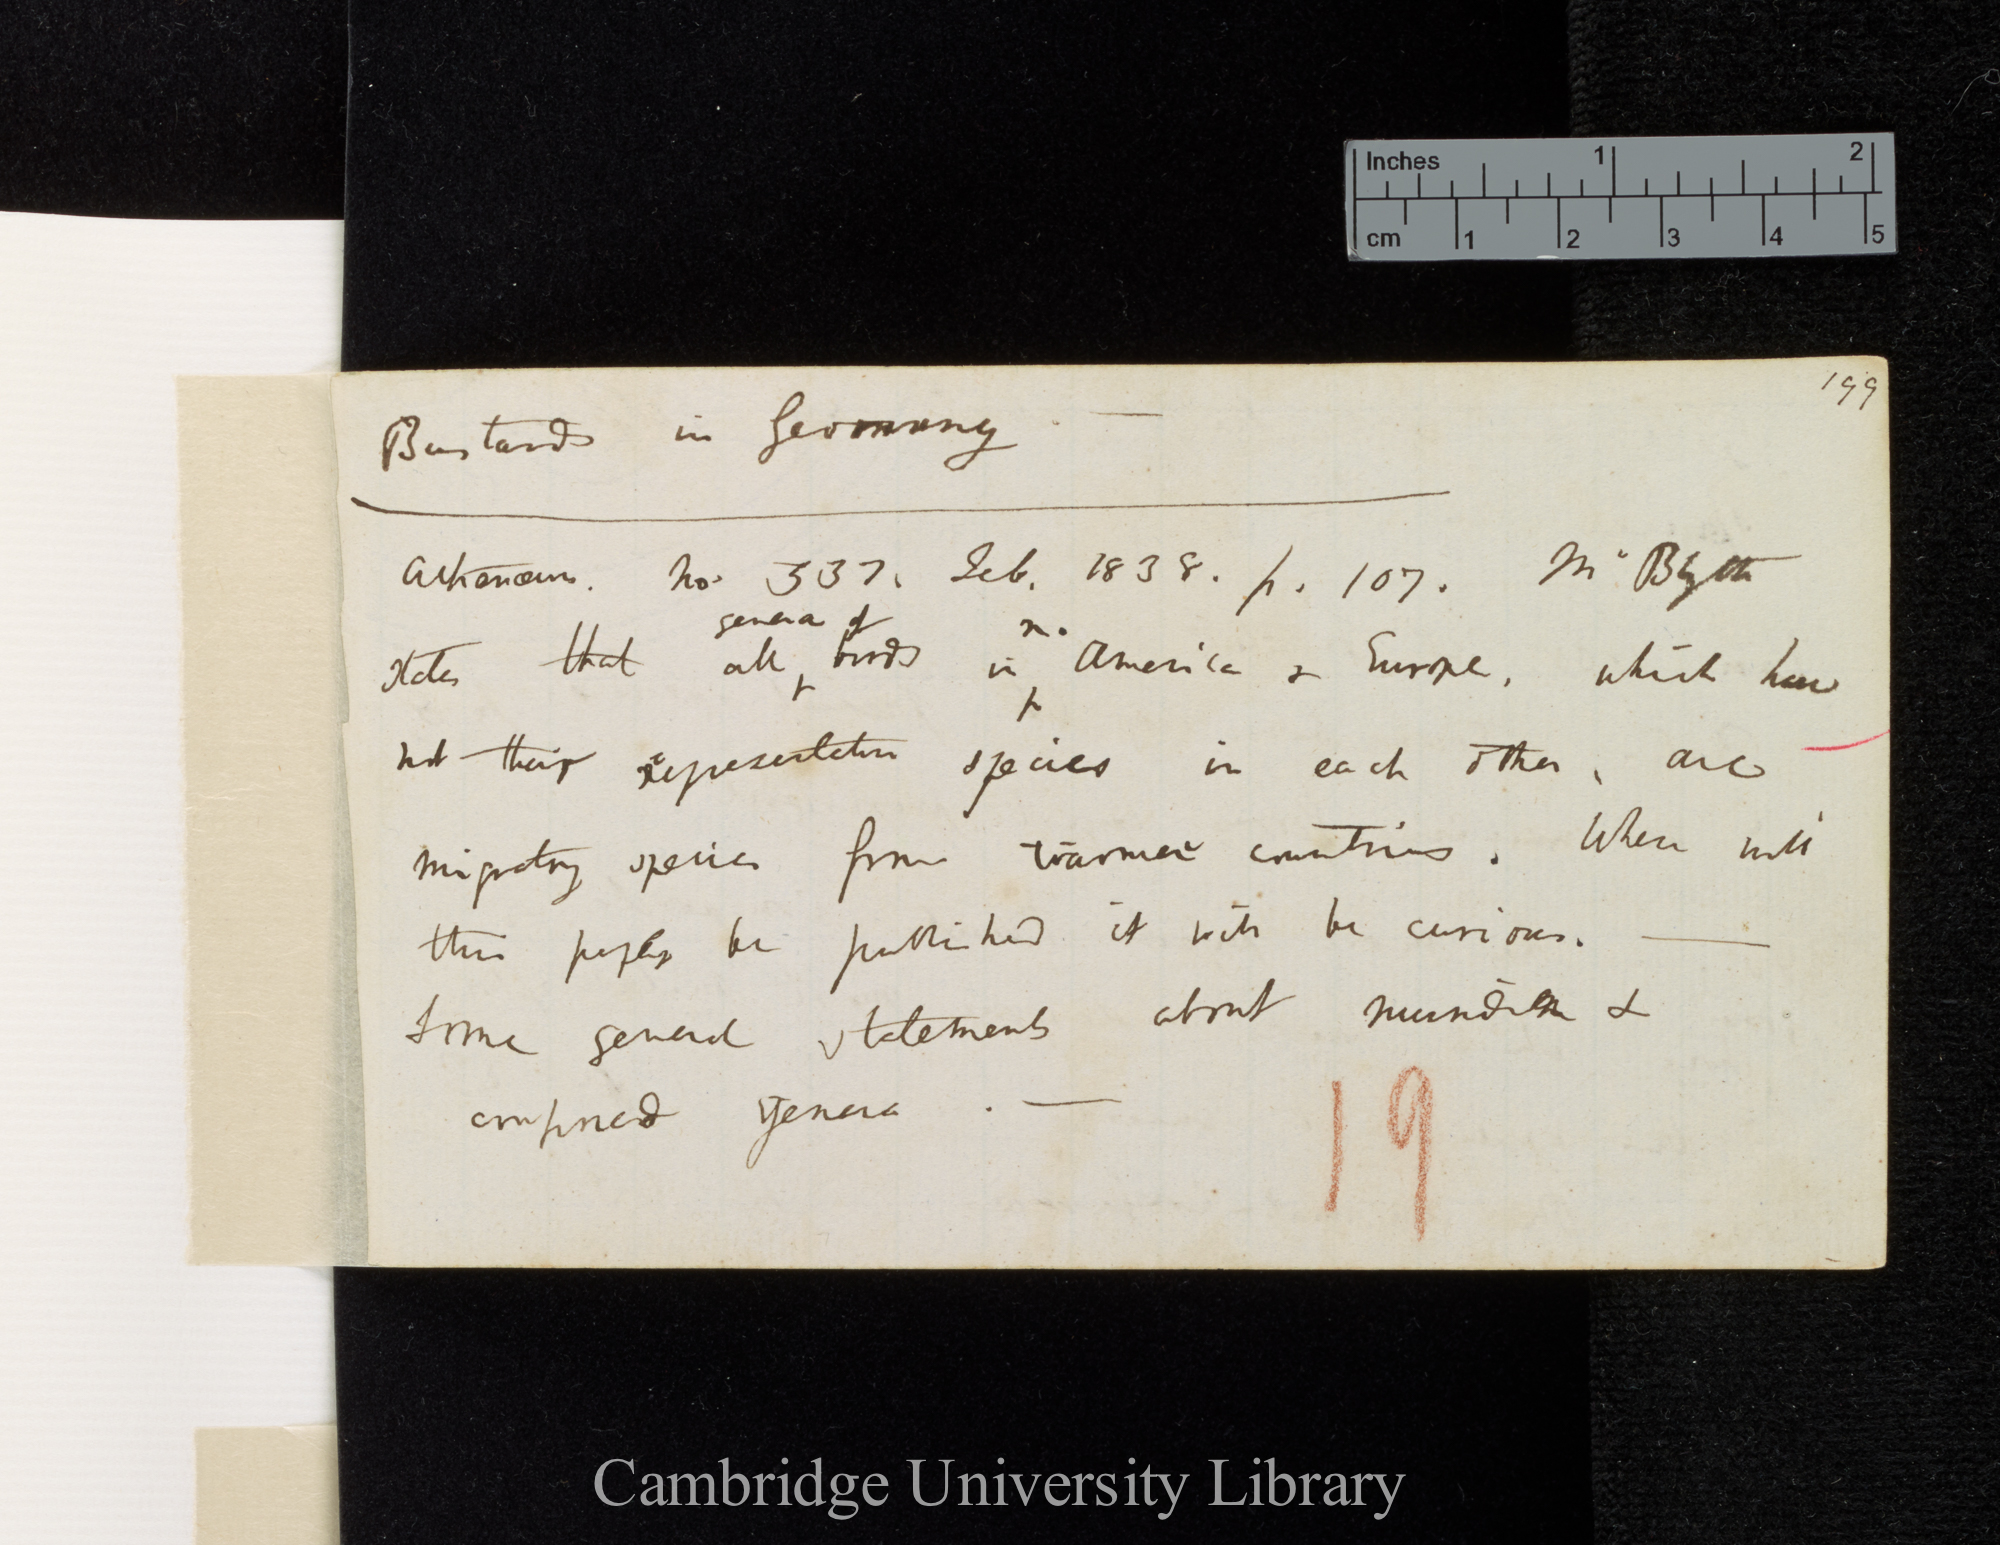 Inches 1 2
cm 1 2 3 4 5
199
Bustards in Germany . —
Athenæum. No. 537. Feb. 1838. p. 107. Mr Blyth
genera of N.
states that all birds in America & Europe, which have
not their representative species in each other, are
migratory species from warmer countries. When will
this paper be published it will be curious. —
Some general statements about mundine &
confined genera . —
19
Cambridge University Library